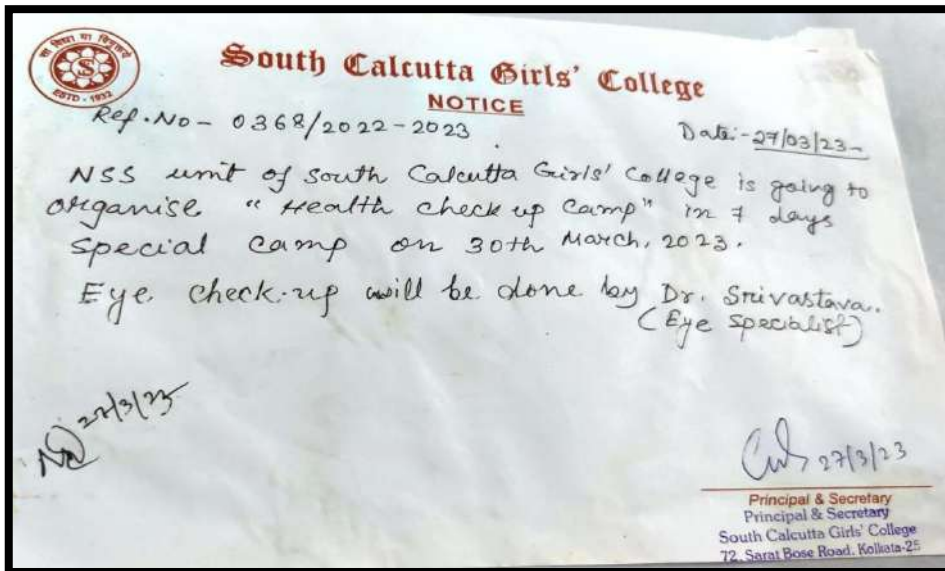 सा विद्या या विमुक्तये
S
ESTD - 1932
South Calcutta Girls' College
NOTICE
Ref. No - 0368/2022-2023
Date:- 27/03/23
NSS unit of South Calcutta Girls' College is going to
organise "Health check up Camp" in 7 days
special camp on 30th March, 2023.
Eye check-up will be done by Dr. Srivastava.
(Eye specialist)
27/3/23
27/3/23
Principal & Secretary
Principal & Secretary
South Calcutta Girls' College
72, Sarat Bose Road, Kolkata-25